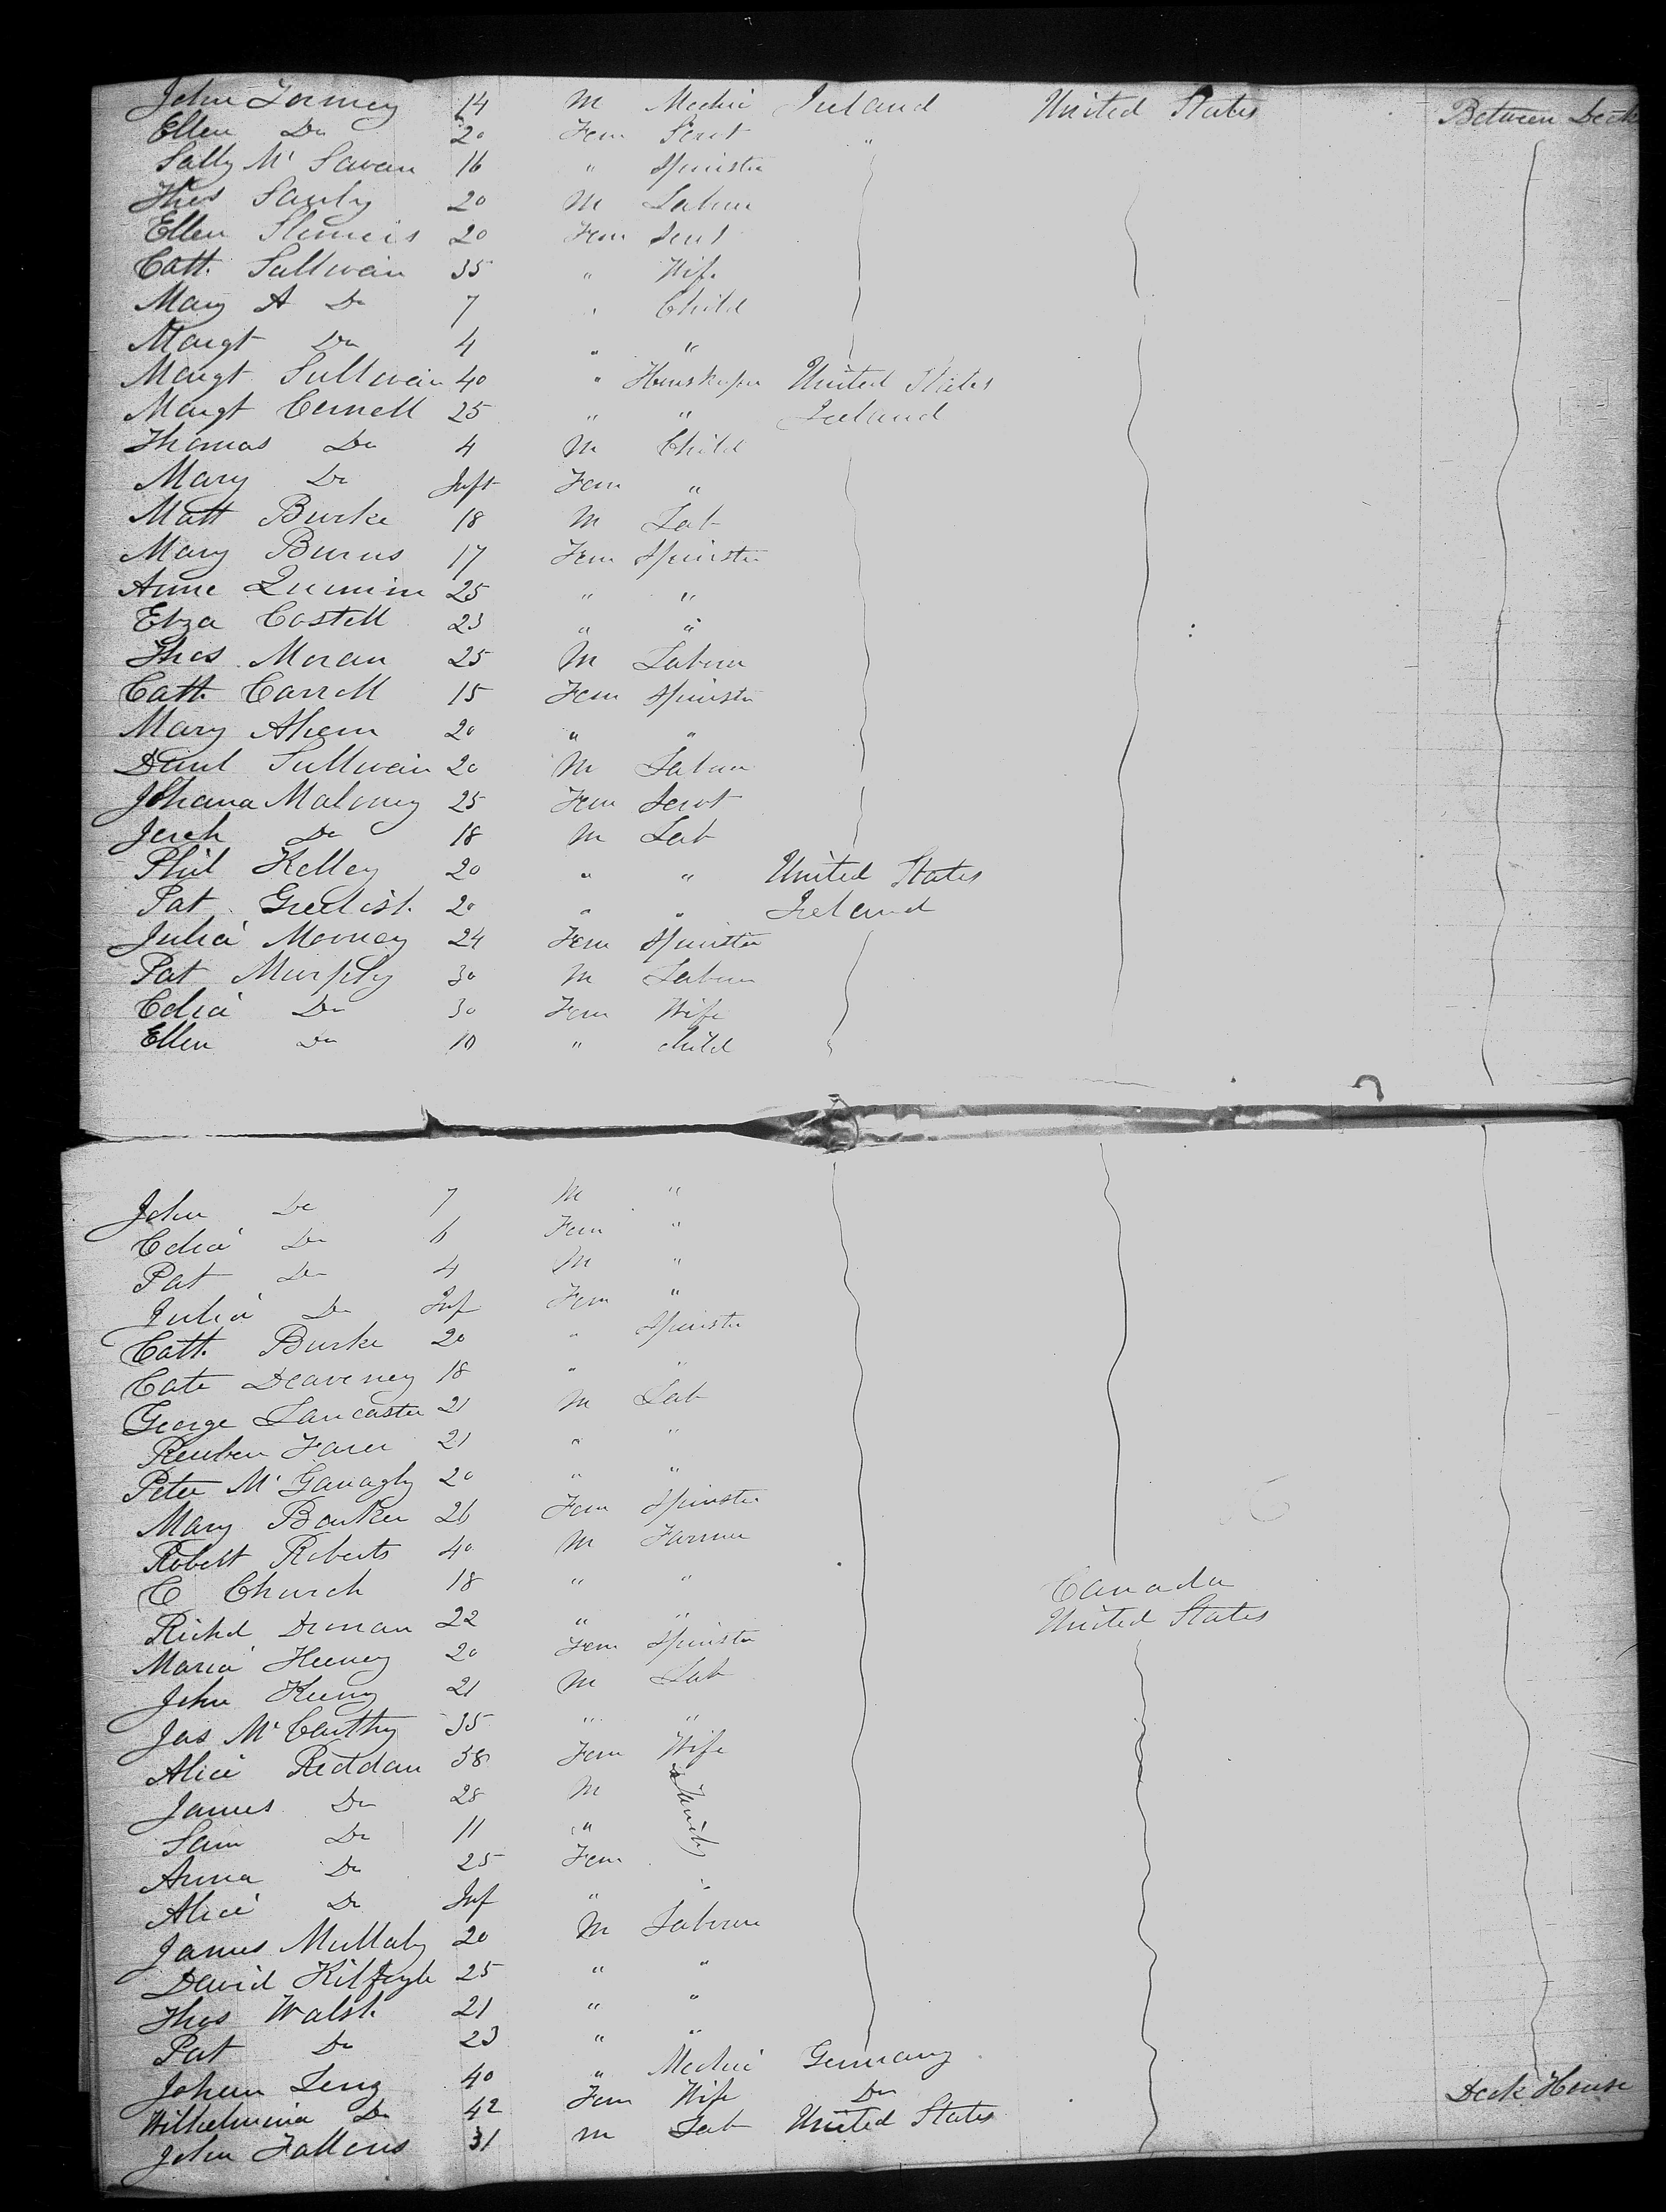 John Tormey 14 M Mechc Ireland United States Between Decks
Ellen Do 20 Fem Servt "
Sally Mc Savan 16 " Spinster
Thos Sauly 20 M Labour
Ellen 20 Fem Servt
Cath. Sullivan 35 " Wife
Mary A Do 7 " Child
Margt Do 4 " "
Margt Sullivan 40 " Houskeper United States
Margt Connell 25 " " Ireland
Thomas Do 4 M Child
Mary Do Inft Fem "
Matt Burke 18 M Lab
Mary Burns 17 Fem Spinster
Anne 25 " "
Eliza Costell 23 " "
Thos Moran 25 M Labour
Cath Carroll 15 Fem Spinster
Mary Ahern 20 " "
Danl Sullivan 20 M Labour
Johana Maloney 25 Fem Servt
Jereh Do 18 M Lab
Phil Kelley 20 " " United States
Pat 20 " " Ireland
Julia Mooney 24 Fem Spinster
Pat Murphy 30 M Labour
Celia Do 30 Fem Wife
Ellen Do 10 " child
John Do 7 M "
Celia Do 6 Fem "
Pat Do 4 M "
Julia Do Inf Fem "
Cath. Burke 20 " Spinster
Cate Deaveney 18 " "
George Lancaster 21 M Lab
Reuben Farer 21 " "
Peter Mc Ganagly 20 " "
Mary Barker 26 Fem Spinster
Robert Roberts 40 M Farmer
C Church 18 " " Canada
Richd 22 " " United States
Maria Heeney 20 Fem Spinster
John Keeny 21 M Lab
Jas Mc Carthy 35 " "
Alice Reddan 38 Fem Wife
James Do 28 M & Family
Sam Do 11 "
Anna Do 25 Fem
Alice Do Inf " "
James Mullaly 20 M Labour
David 25 " "
Thos Walsh 21 " "
Pat Do 23 " "
Johan Leng 40 " Mechc Germany
Wilhelmina Do 42 Fem Wife Do Deck House
John Fallons 31 M Lab United States